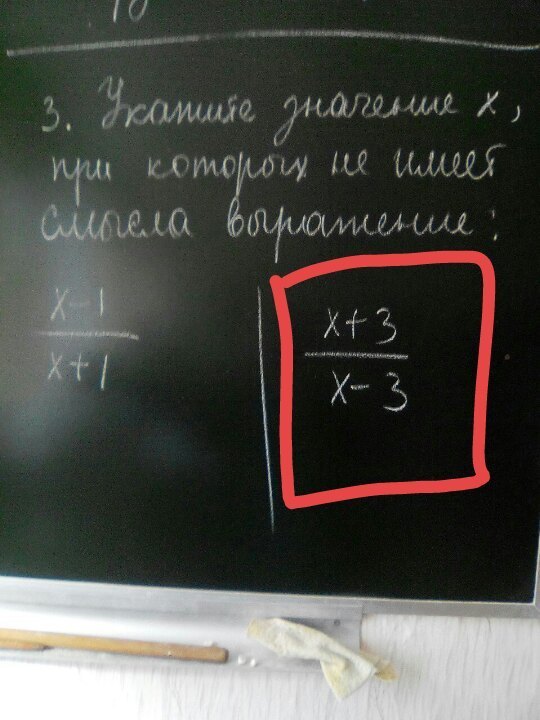 3. Укажите значение х,
при которых не имеет
смысла выражение:
x-1
x+1
x+3
x-3